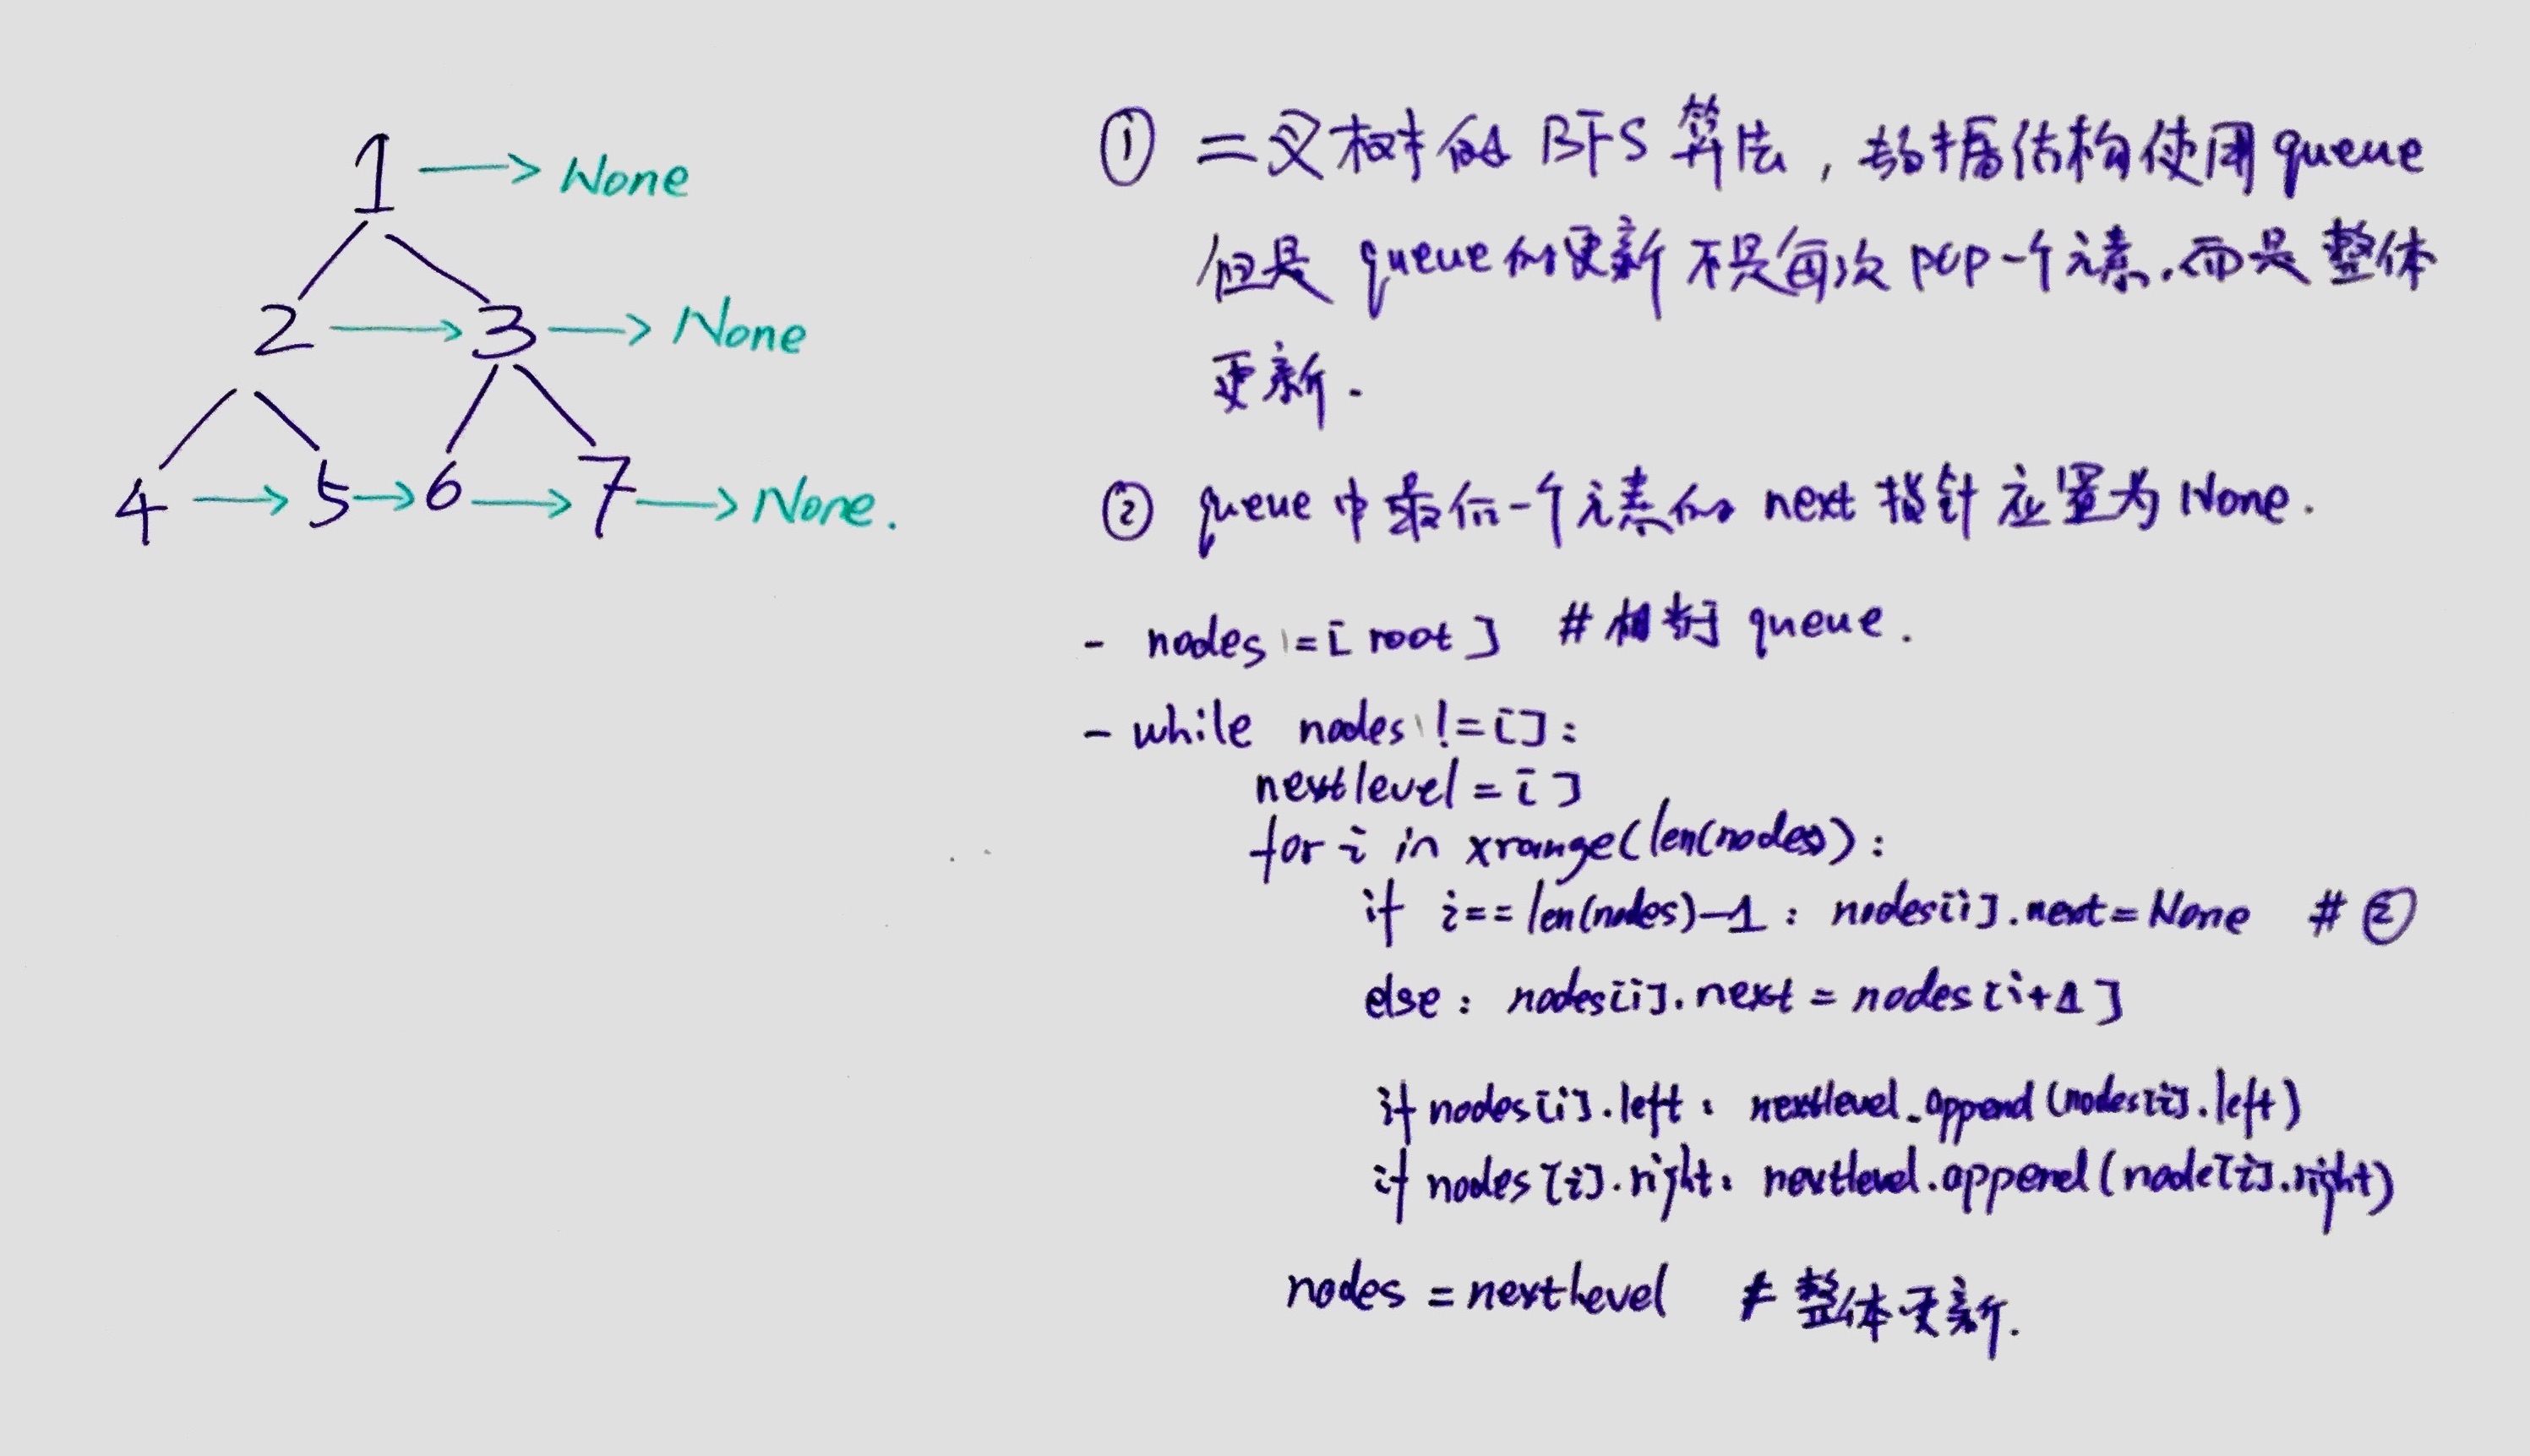 1 → None
2 → 3 → None
4 → 5 → 6 → 7 → None.
① 二叉树的 BFS 算法，数据结构使用 queue
但是 queue 的更新不是每次 pop 一个元素.而是整体
更新.
② queue 中最后一个元素的 next 指针应置为 None.
- nodes = [ root ] # 相当于 queue.
- while nodes != []:
nextlevel = []
for i in xrange(len(nodes):
if i == len(nodes)-1 : nodes[i].next = None # ②
else : nodes[i].next = nodes [i+1]
if nodes[i].left : nextlevel.append (nodes[i].left)
if nodes [i].right : nextlevel.append (node[i].right)
nodes = nextlevel # 整体更新.